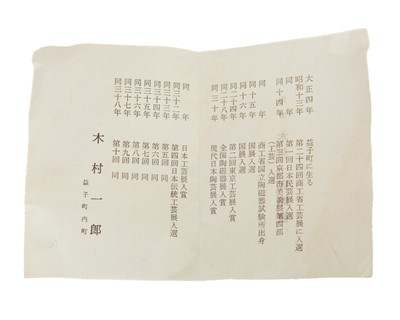 大正四年 益子町に生る
昭和十三年 第二十四回商工省工芸展に入選
同年 第一回日本民芸展入選
同十四年 第三回京都市美術展第四部
(工芸)入選
同年 商工省国立陶磁器試験所出身
同十五年 国展入選
同十六年 国展入選
同二十四年 第二回東京工芸展入賞
同二十八年 全国陶磁器展入賞
同三十年 現代日本陶芸展入賞
同三十二年 日本工芸展入賞
同三十三年 第四回日本伝統工芸展入選
同三十四年 第五回 同
同三十五年 第六回 同
同三十六年 第八回 同
同三十七年 第九回 同
同三十八年 第十回 同
木村一郎
益子町内町